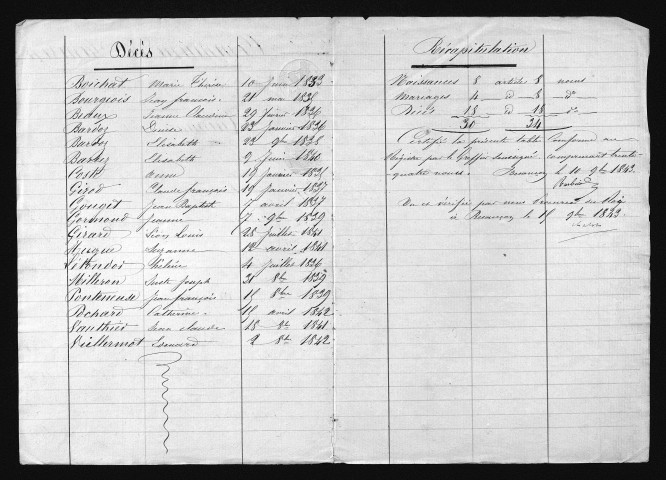 Décés
Boichat Marie Thérèse 10 juin 1833
Bourgeois françois 21 mai 1836
Bedux Jeanne Claudine 29 févier 1836
Bardoz Denise 23 janvier 1836
Bardoz Elisabeth 22 9bre 1838
Barbey Elisabeth 2 juin 1840
anne 19 janvier
Girod Claude françois 19 janvier 1837
Gouget Jean Baptiste 7 avril 1837
Jeanne 7 9bre 1839
Girard Léon Louis 28 juillet 1841
Suzanne 12 avril 1841
Hélène 4 juillet 1836
Milleron Just Joseph 21 8bre 1839
Jean françois 15 8bre 1839
Pochard Catherine 15 avril 1842
Vauthier Jean Claude 18 8bre 1841
Vuillermot Edouard 2 8bre 1842
Récapitulation
Naissances 8 article 8 noms
Mariages 4 d 8 d°
Décès 18 d 18 d°
30 34
Certifié la présente table conforme au
Régistre par le Greffier soussigné comprenant trente
quatre noms. Besançon le 10 9bre 1843.
Vu et vérifié par nous
à Besançon le 15 9bre 1843.